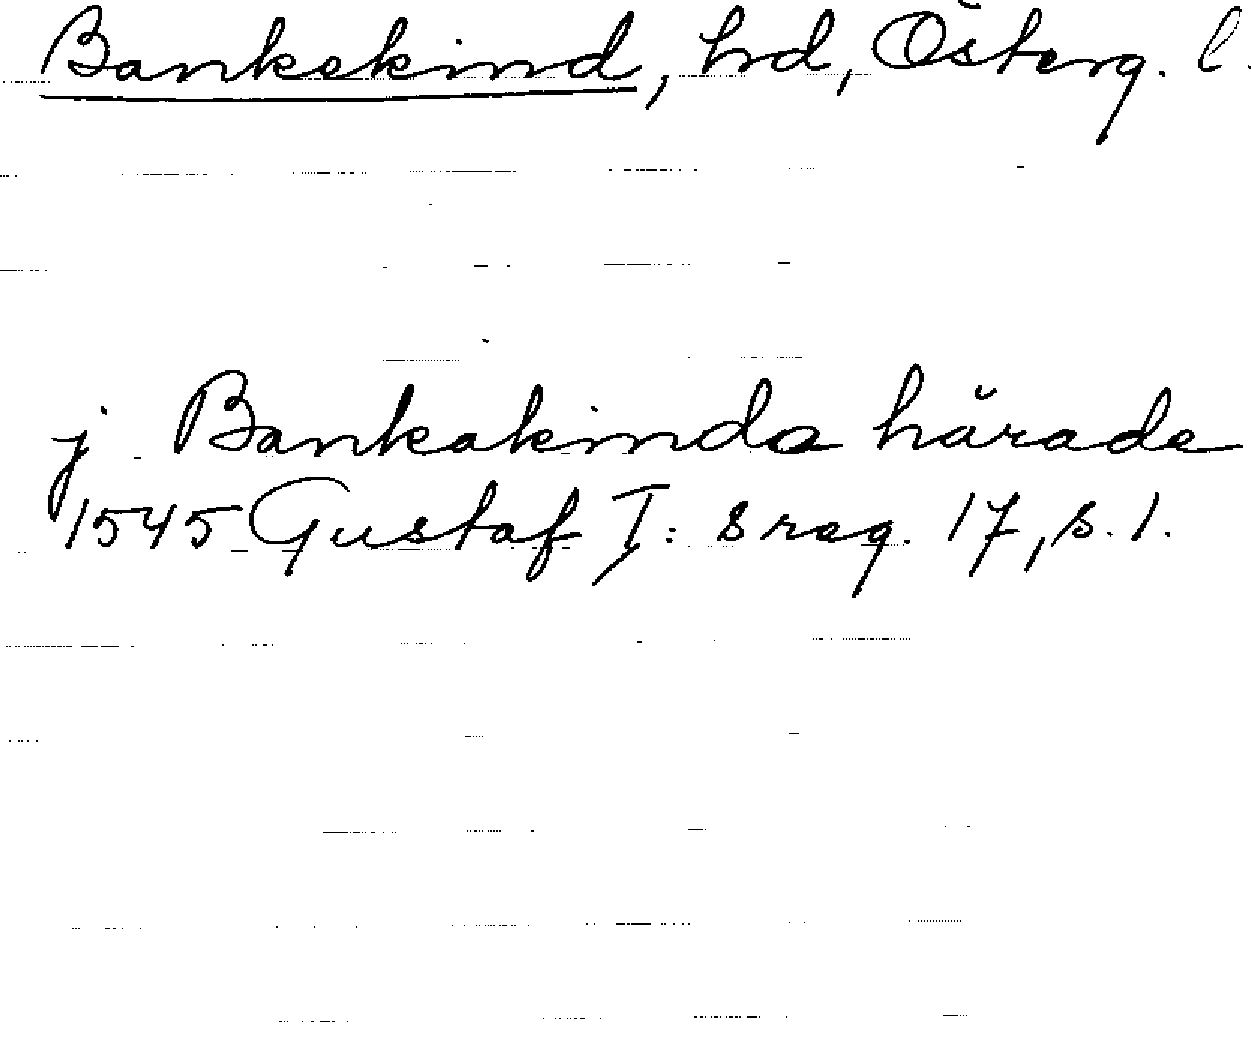 Bankekind, hd, Österg. l.
j Bankakinda härade
1545 Gustaf I:s reg. 17, s. 1.